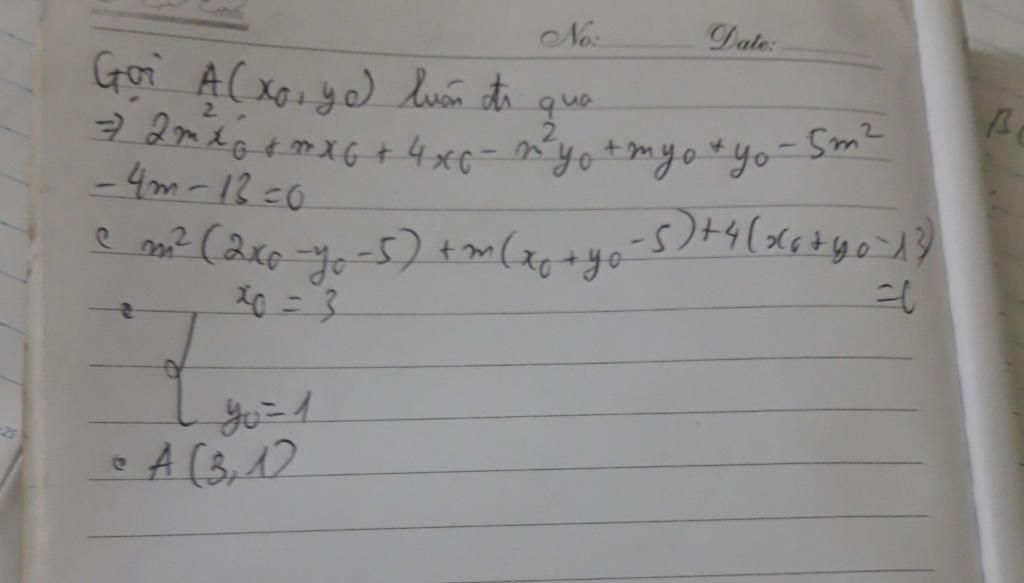 No: Date:
Gọi A(x₀, y₀) luôn đi qua
⇒ 2m²x₀ + mx₀ + 4x₀ - m²y₀ + my₀ + y₀ - 5m²
- 4m - 13 = 0
m²(2x₀ - y₀ - 5) + m(x₀ + y₀ - 5) + 4(x₀ + y₀ - 13)
= 0
x₀ = 3
y₀ = 1
A(3, 1)